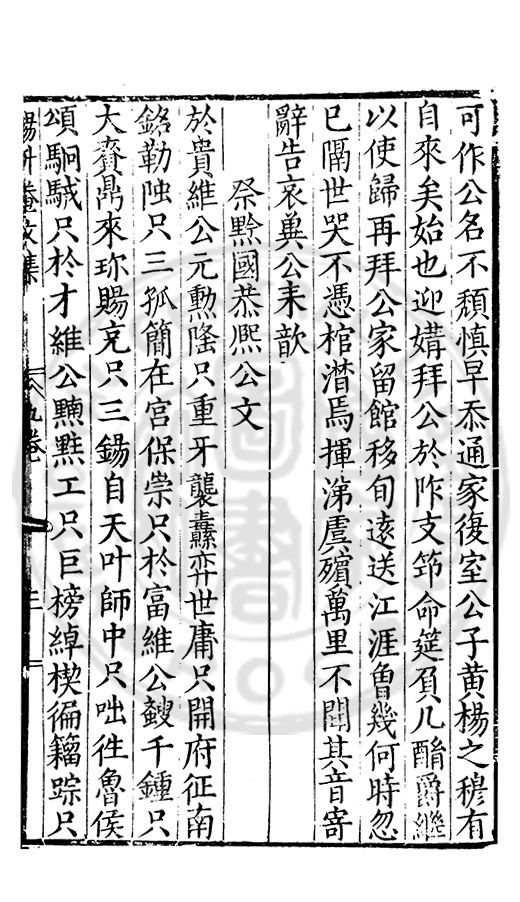 可作公名不頹慎早忝通家復室公子黄楊之穆有
自來矣始也迎媾拜公於阼支筇命筵頁几酳爵繼
以使歸再拜公家留館移旬逺送江涯魯幾何時忽
已隔世哭不憑棺潸焉揮涕虞殯萬里不聞其音寄
辭告哀兾公来歆
祭黔國恭熈公文
於貴維公元勲隆只重牙襲纛弈世庸只開府征南
銘勒㧖只三孤簡在宫保崇只於富維公鼗千鍾只
大賚鼎來珎賜充只三錫自天叶師中只咄徃魯侯
頌駉駥只於才維公黼黻工只巨榜綽楔徧籀踪只
楊升菴文集
九卷